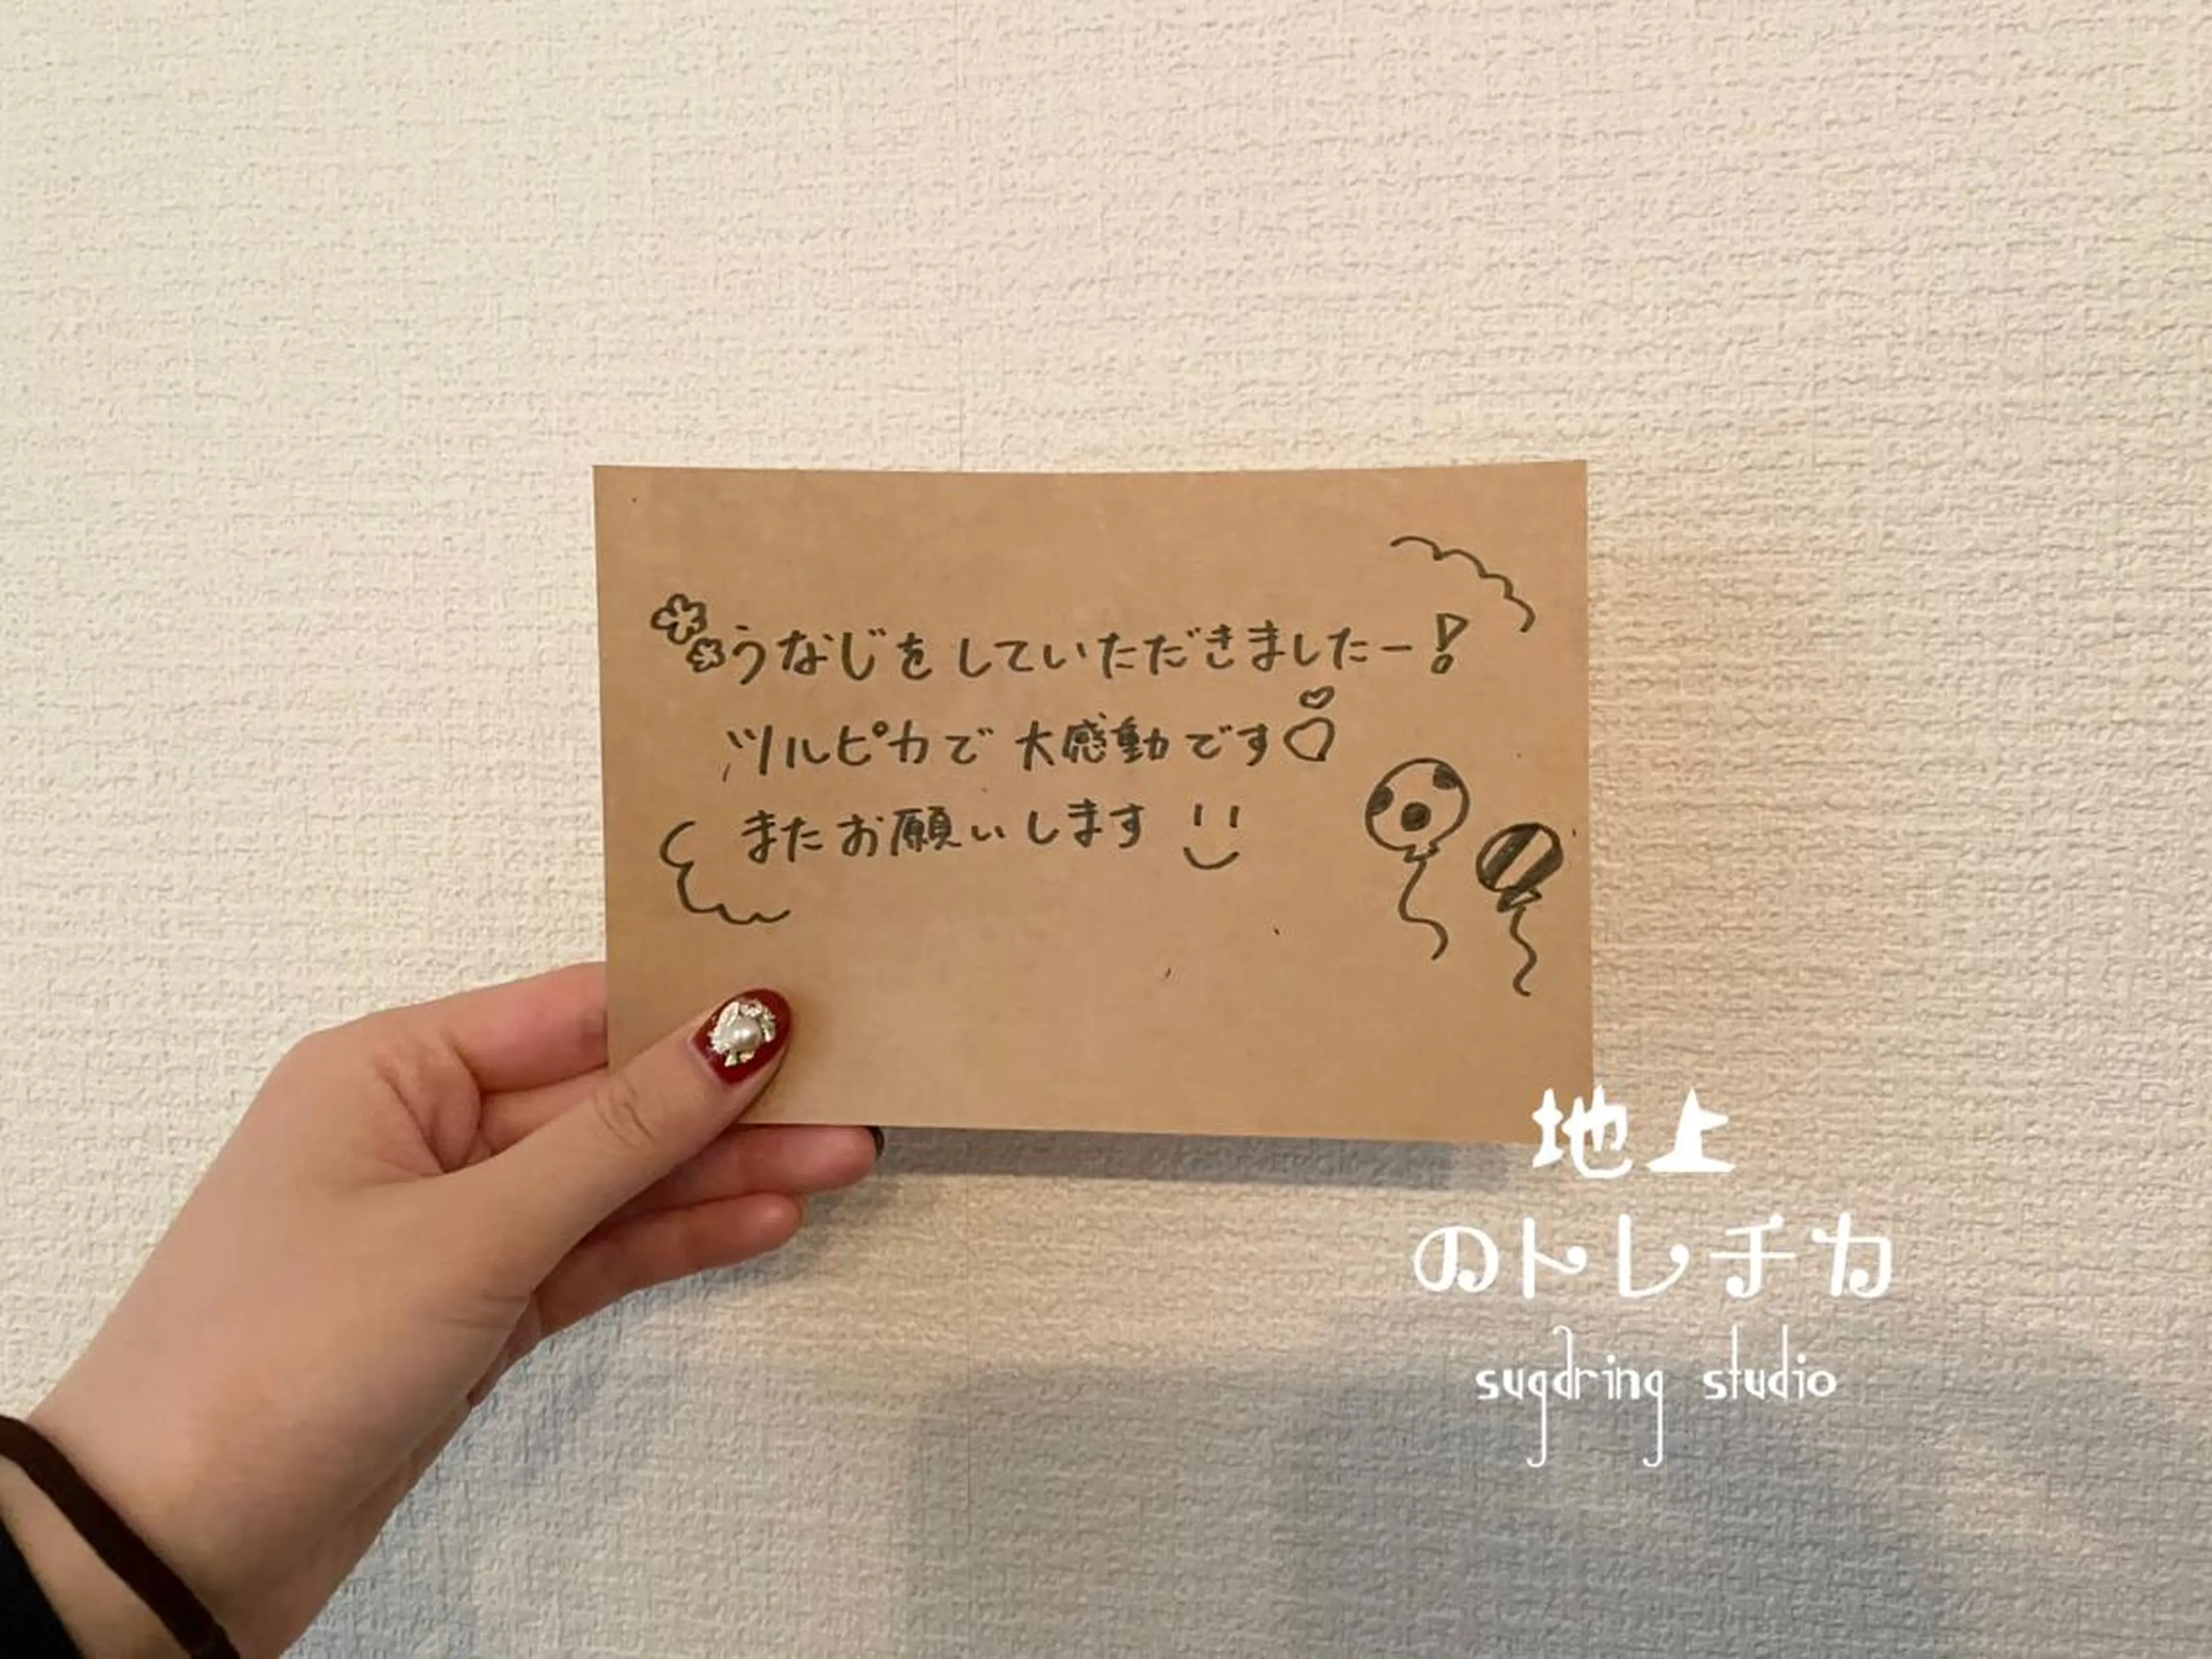 うなじをしていただきましたー!
ツルピカで大感動です♡
またお願いします
地上
のトレチカ
sugdring studio